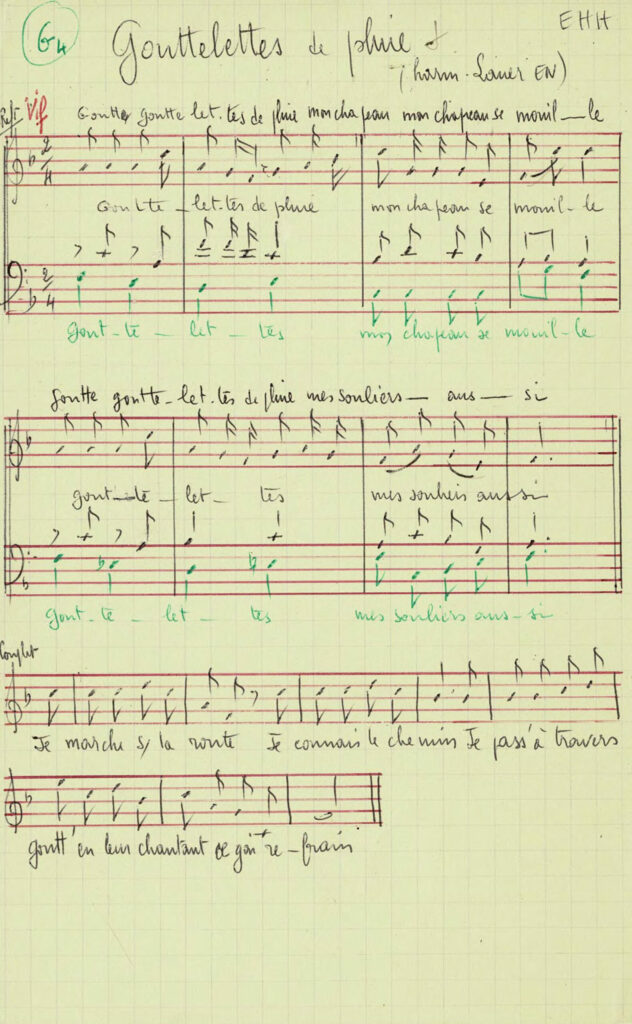 G4
Gouttelettes de pluie
EHH
(harm. Lauer EN)
Refr Vif
Goutte goutte let. tes de pluie mon chapeau mon chapeau se mouil — le
2/4
Gout-te - let-tes de pluie mon chapeau se mouil-le
2/4
gout-te - let - tes mon chapeau se mouil-le
goutte goutte-let. tes de pluie mes souliers — aus — si
gout-te - let - tes mes souliers aussi
gout-te - let - tes mes souliers aus-si
Couplet
Je marche s/ la route Je connais le chemin Je pass' à travers
goutt' en leur chantant ce gai re-frain